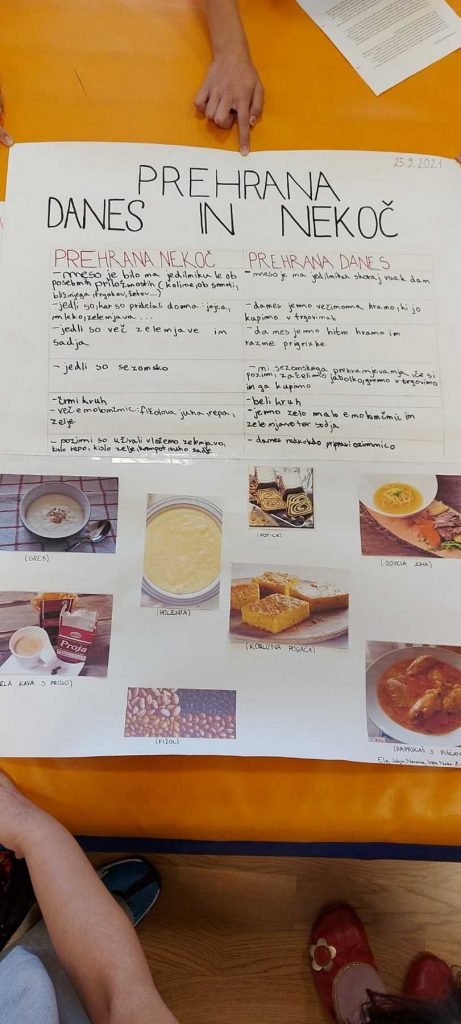 25.9.2021
PREHRANA
DANES IN NEKOČ
PREHRANA NEKOČ
- meso je bilo na jedilniku le ob
posebnih priložnostih (koline, ob smrti
bližnjega, žetev...)
- jedli so, kar so pridelali doma: jajca,
mleko, zelenjava...
- jedli so več zelenjave in
sadja
- jedli so sezonsko
- črni kruh
- več enolončnic: fižolova, juha, repa,
zelje
- pozimi so uživali vloženo zelenjavo,
kislo repo, kislo zelje, kompot, suho sadje
PREHRANA DANES
- meso je na jedilniku skoraj vsak dan
- danes jemo večinoma hrano, ki jo
kupimo v trgovinah
- danes jemo hitro hrano in
razne prigrizke
- ni sezonskega prehranjevanja, če si
pozimi zaželimo jabolko, gremo v trgovino
in ga kupimo
- beli kruh
- jemo zelo malo enolončnic in
zelenjave ter sadja
- danes redkokdo pripravi ozimnico
(GRES)
(POLENTA)
(POTICA)
(GOVEJA JUHA)
Proja
ELA KAVA S PROJO)
(KORUZNA POGAČA)
(FIŽOL)
(PAPRIKAŠ S PIŠČAN